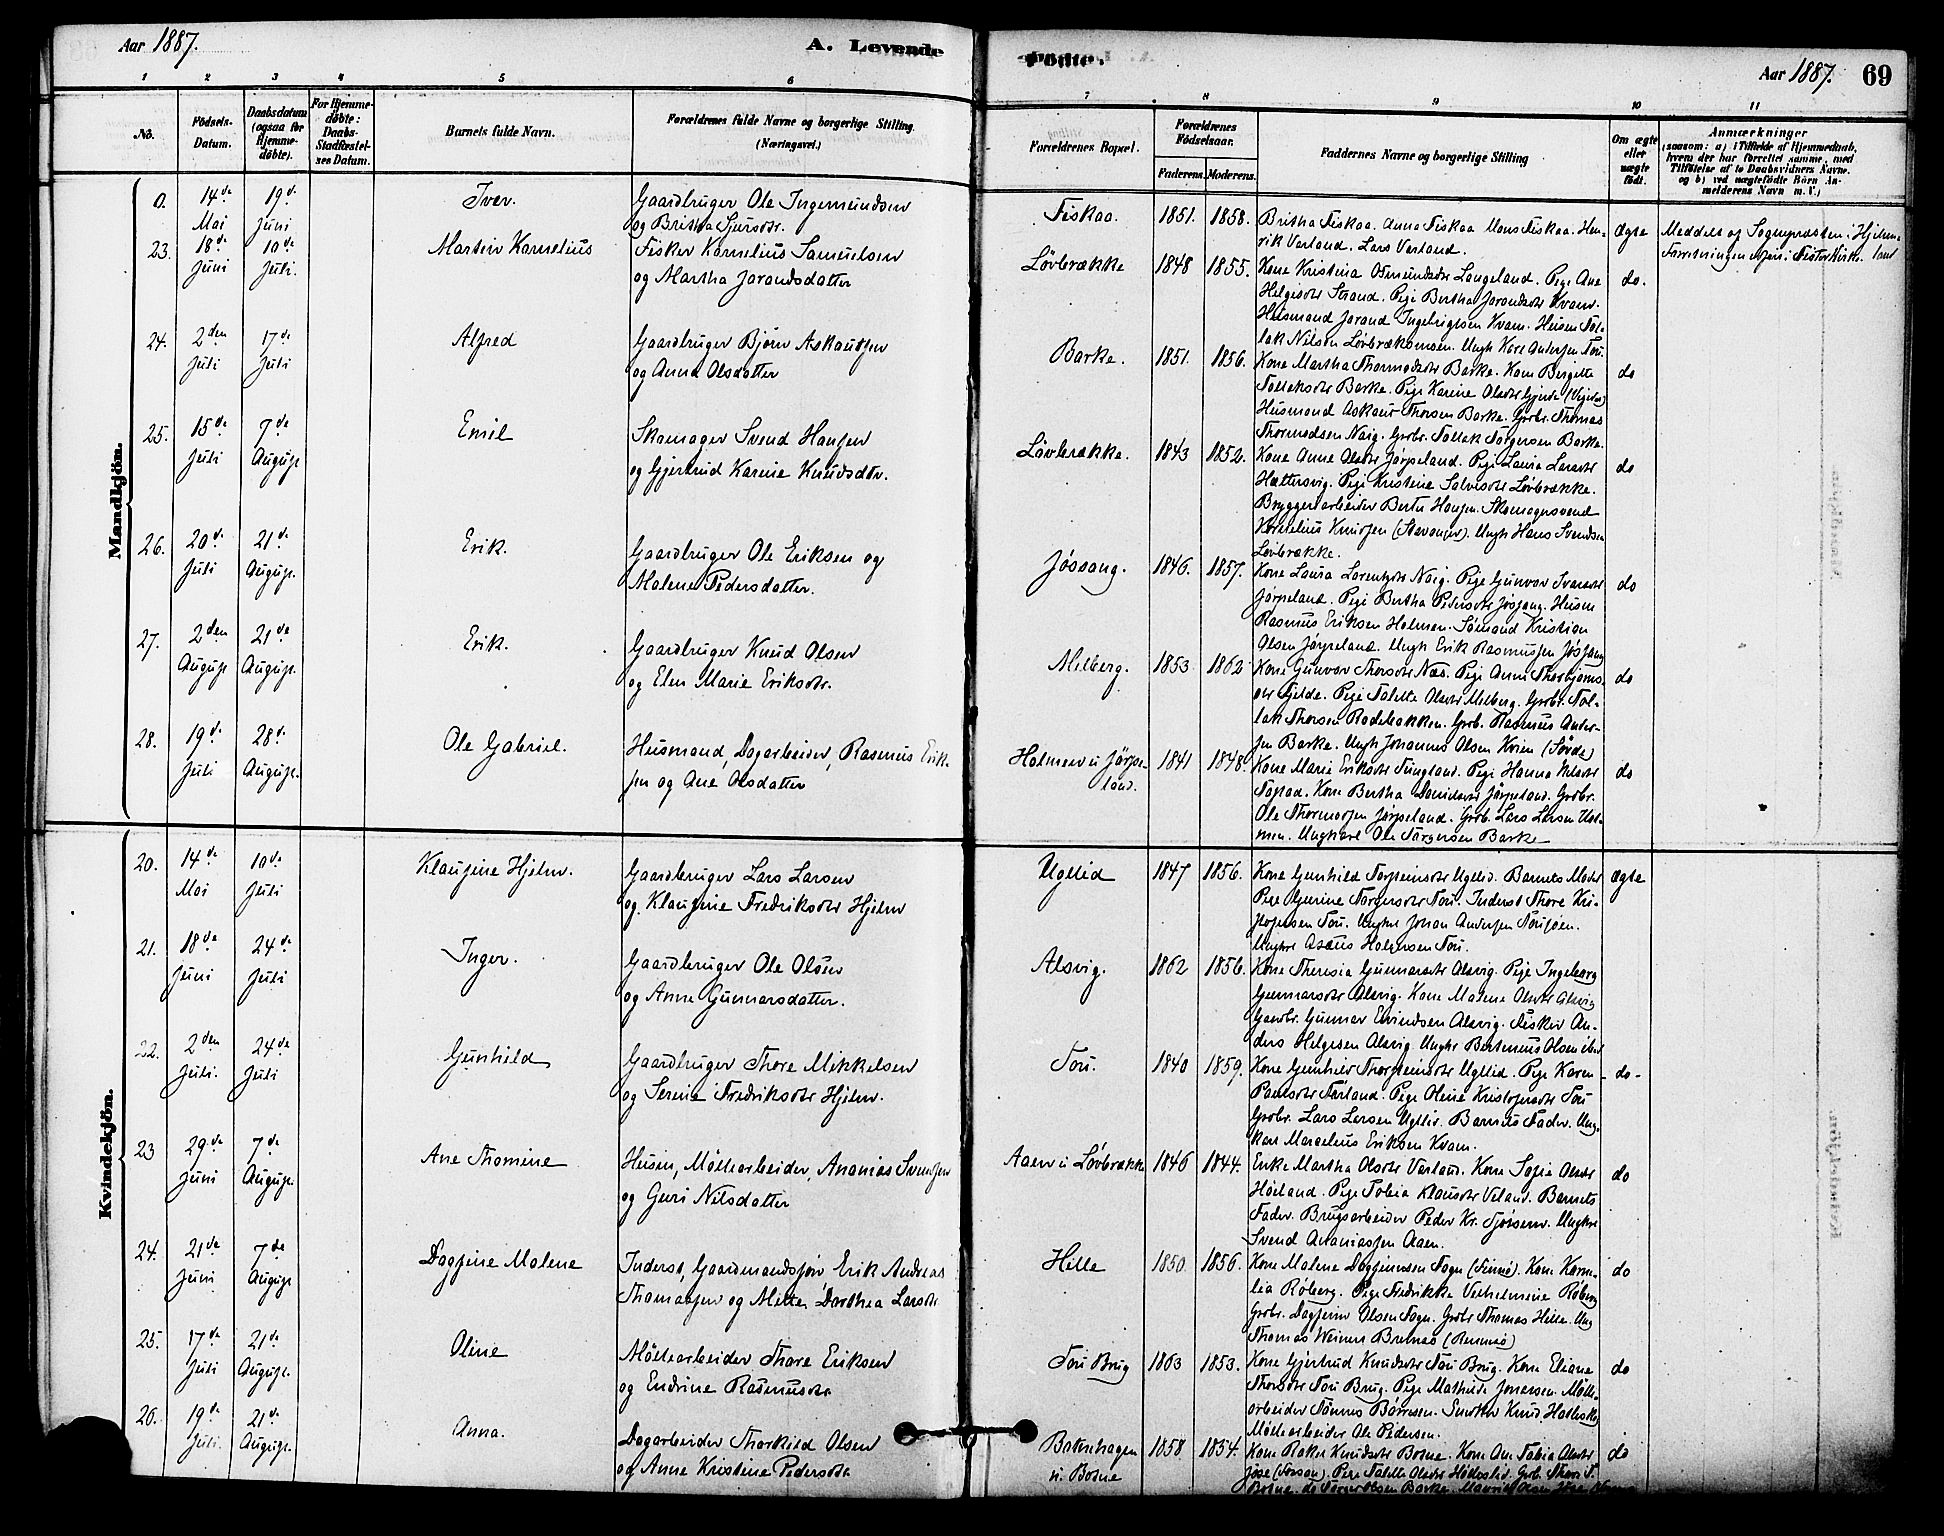 Aar 1887.
A. Levende
Fødte.
Aar 1887. 69
1 2 3 4 5 6 7 8 9 10 11
No.
Fødsels-Datum.
Daabsdatum (ogsaa for Hjemme-døbte).
For Hjemme-døbte: Daabs-Stadfæstel-ses Datum.
Barnets fulde Navn.
Forældrenes fulde Navne og borgerlige Stilling. (Næringsvei.)
Forældrenes Bopæl.
Forældrenes Fødselsaar.
Faderens. Moderens.
Faddernes Navne og borgerlige Stilling
Om ægte eller uægte født.
Anmærkninger
(saasom: a) i Tilfælde af Hjemmedaab,
hvem der har forrettet samme, med
Tilføielse af to Daabsvidners Navne.
og b) ved uægtefødte Børn An-
melderens Navn m. V.)
Mandkjön.
0. 14de Mai 19de Juni Iver. Gaardbruger Ole Ingemundsen
og Britha Sjursdtr. Fiskaa. 1851. 1858. Britha Fiskaa. Anna Fiskaa Mons Fiskaa. Hen-
rik Varland. Lars Varland. ægte Meddelt af Sognepræsten i Hjelme-
land
23. 18de Juni 10de Juli. Martin Kornelius Fisker Kornelius Samuelsen
og Martha Jorandsdatter Løvbrække 1848 1855. Kone Kristina Osmundsdtr Langeland. Pige Ane
Helgesdtr Strand. Pige Bertha Jorandsdtr Kvam.
Husmand Jorand Ingebrigtsen Kvam. Husm Tol-
lak Nilsen Løvbrækmoen. Ungk Kore Andersen Tou. do.
24. 2den Juli 17de Juli Alfred Gaardbruger Bjørn Askautsen
og Anna Olsdatter Barke. 1851. 1856. Kone Martha Thormodsdtr Barke. Kone Birgitte
Tollaksdtr Barke. Pige Karine Olsdtr
Husmand Askaut Thorsen Barke. Grbr. Thomas
Thormodsen Naig. Grbr. Tollak Torgersen Barke. do
25. 15de Juli 7de August. Emil Skomager Svend Hansen
og Gjertrud Karine Knudsdtr. Løvbrække. 1843 1852. Kone Anne Olsdtr Jørpeland. Pige Laura Larsdtr
Hættersvig. Pige Kristine Salvesdtr Løvbrække.
Bryggeriarbeider Berte Hansen. Skomagersvend
Kornelius Knudsen (Stavanger). Ungk Hans Svendsen
Løvbrække. do
26. 20de Juli 21de August. Erik. Gaardbruger Ole Eriksen og
Malene Pedersdatter. Jøssang. 1846. 1857. Kone Laura Larentsdtr Naig. Pige Gunvor Ivarsdtr
Jørpeland. Pige Bertha Pedersdtr Jøssang. Husm
Rasmus Eriksen Holmen. Sømand Kristian
Olsen Jørpeland. Ungk Erik Rasmussen Jøssang do
27. 2den August 21de August. Erik. Gaardbruger Knud Olsen
og Elen Marie Eriksdtr. Meiberg. 1853 1862 Kone Gunvor Thorsdtr Næs. Pige Anna Thorbjørns-
dtr Fjelde. Pige Tolette Olsdtr Meiberg. Grbr. Tol-
lak Thorsen Rodebakken. Grbr. Rasmus Ander-
sen Barke. Ungk Johannes Olsen Kvien do
28. 19de Juli 28de August. Ole Gabriel. Husmand, Dagarbeider, Rasmus Erik-
sen og Ane Olsdatter Holmen u Jørpe-
land. 1841 1848. Kone Marie Eriksdtr Tungland. Pige Hanna Nilsdtr
Kone Bertha Danielsdtr Jørpeland. Grbr.
Ole Thormodsen Jørpeland. Grbr. Lars Larsen Hol-
men. Ungkarl Ole Torgersen Barke do
Kvindekjön.
20. 14de Mai 10de Juli Klausine Hjelm. Gaardbruger Lars Larsen
og Klausine Fredriksdtr Hjelm Uglelid 1847 1856. Kone Gunhild Torsteinsdtr Uglelid. Barnets Moder
Pige Gurine Torgersdtr Tou. Inderst Thore Kri-
stofersen Tou. Ungkrl Johan Andersen Tousjøen.
Ungkrl Holgersen Tou. ægte
21. 18de Juni 24de Juli Inger. Gaardbruger Ole Olsen
og Anne Gunnarsdatter. Alsvig. 1862 1856. Kone Theresia Gunnarsdtr Alsvig. Pige Ingeborg
Gunnarsdtr Alsvig. Kone Malene Olsdtr Alsvig
Gaardbr. Gunnar Evindsen Alsvig. Fisker An-
ders Helgesen Alsvig Ungkr Bertinius Olsen ibid
22. 2den Juli. 24de Juli Gunhild Gaardbruger Thore Mikkelsen
og Serine Fredriksdtr Hjelm. Tou. 1840 1859. Kone Gunhild Thorsteinsdtr Uglelid. Pige Karen
Paulsdtr Førland. Pige Oline Kristofersdtr Tou
Grbr. Lars Larsen Uglelid. Barnets Fader. Ung-
karl Marcelius Eriksen Kvam. - do -
23 29de Juni 7de August. Ane Thomine Husm, Møllearbeider, Ananias Svendsen
og Guri Nilsdatter Aaen u Løvbrække 1846 1844. Enke Martha Olsdtr Varland. Kone Sofie Olsdtr
Høiland. Pige Tobia Klausdtr Veland. Barnets
Fader. Brugsarbeider Peder Kr. Ungkrl
Svend Ananiassen Aaen. do
24. 21de Juni 7de August Dagfine Malene Inderst, Gaardmandssøn Erik Andreas
Thomassen og Mette Dorthea Larsdtr Hille 1850. 1856. Kone Malene Dagfinnsen Sogn (Finnø). Kone Korne-
lia Roberg. Pige Fredrikke Vilhelmine Roberg
Grbr. Dagfinn Olsen Sogn. Grbr Thomas Hille. Ung
Thomas Weiners Bremnes (Rennesø) do
25. 17de Juli 21de August. Oline Møllearbeider Thore Eriksen
og Endrine Rasmusdtr Tou Brug 1863 1853. Kone Gjertrud Knudsdtr Tou Brug. Kone Eliane
Thorsdtr Tou Brug. Pige Mathilde Jonassen. Mølle-
arbeider Tønnes Børresen. Smed Knud
Møllearbeider Ole Pedersen. do
26. 19de Juli. 21de August. Anna. Dagarbeider Thorkild Olsen
og Anne Kristine Pedersdtr Botnehagen
u. Botne 1858 1854. Kone Rakel Knudsdtr Botne. Kone Ane Tobia Olsdtr
Pige Tolette Olsdtr Grbr. Thore T.
Botne. do Torger Olsen Barke. do